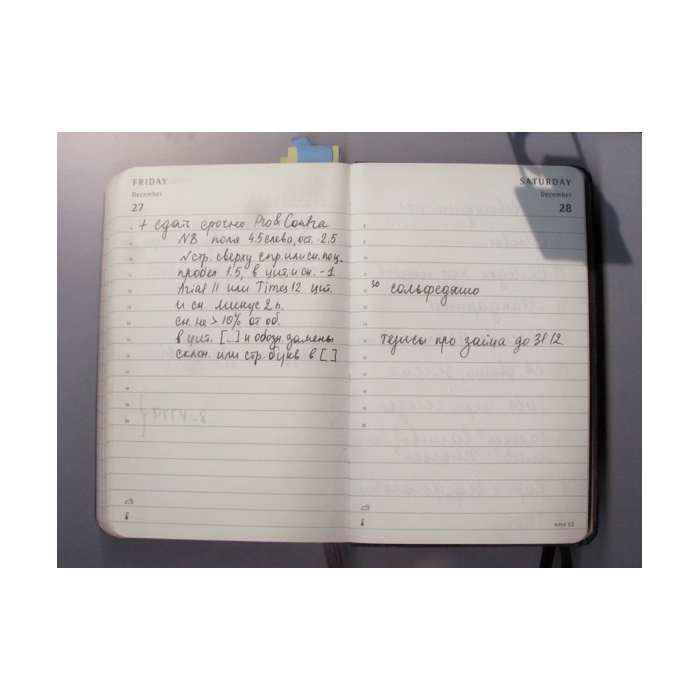 FRIDAY
December
27
+ сдать срочно Pro&Contra
NB поля 4.5 слева, ост. 2.5
№ стр. сверху спр. или сн. поц.
пробел 1.5, в цит. и сн. -1
Arial 11 или Times 12 цит.
и сн. минус 2 п.
сн. не > 10% от об.
в цит. [...] и обозн. замены
склон. или стр. букв в [ ]
SATURDAY
December
28
30 сольфеджио
тезисы про зайца до 31 12.
week 52